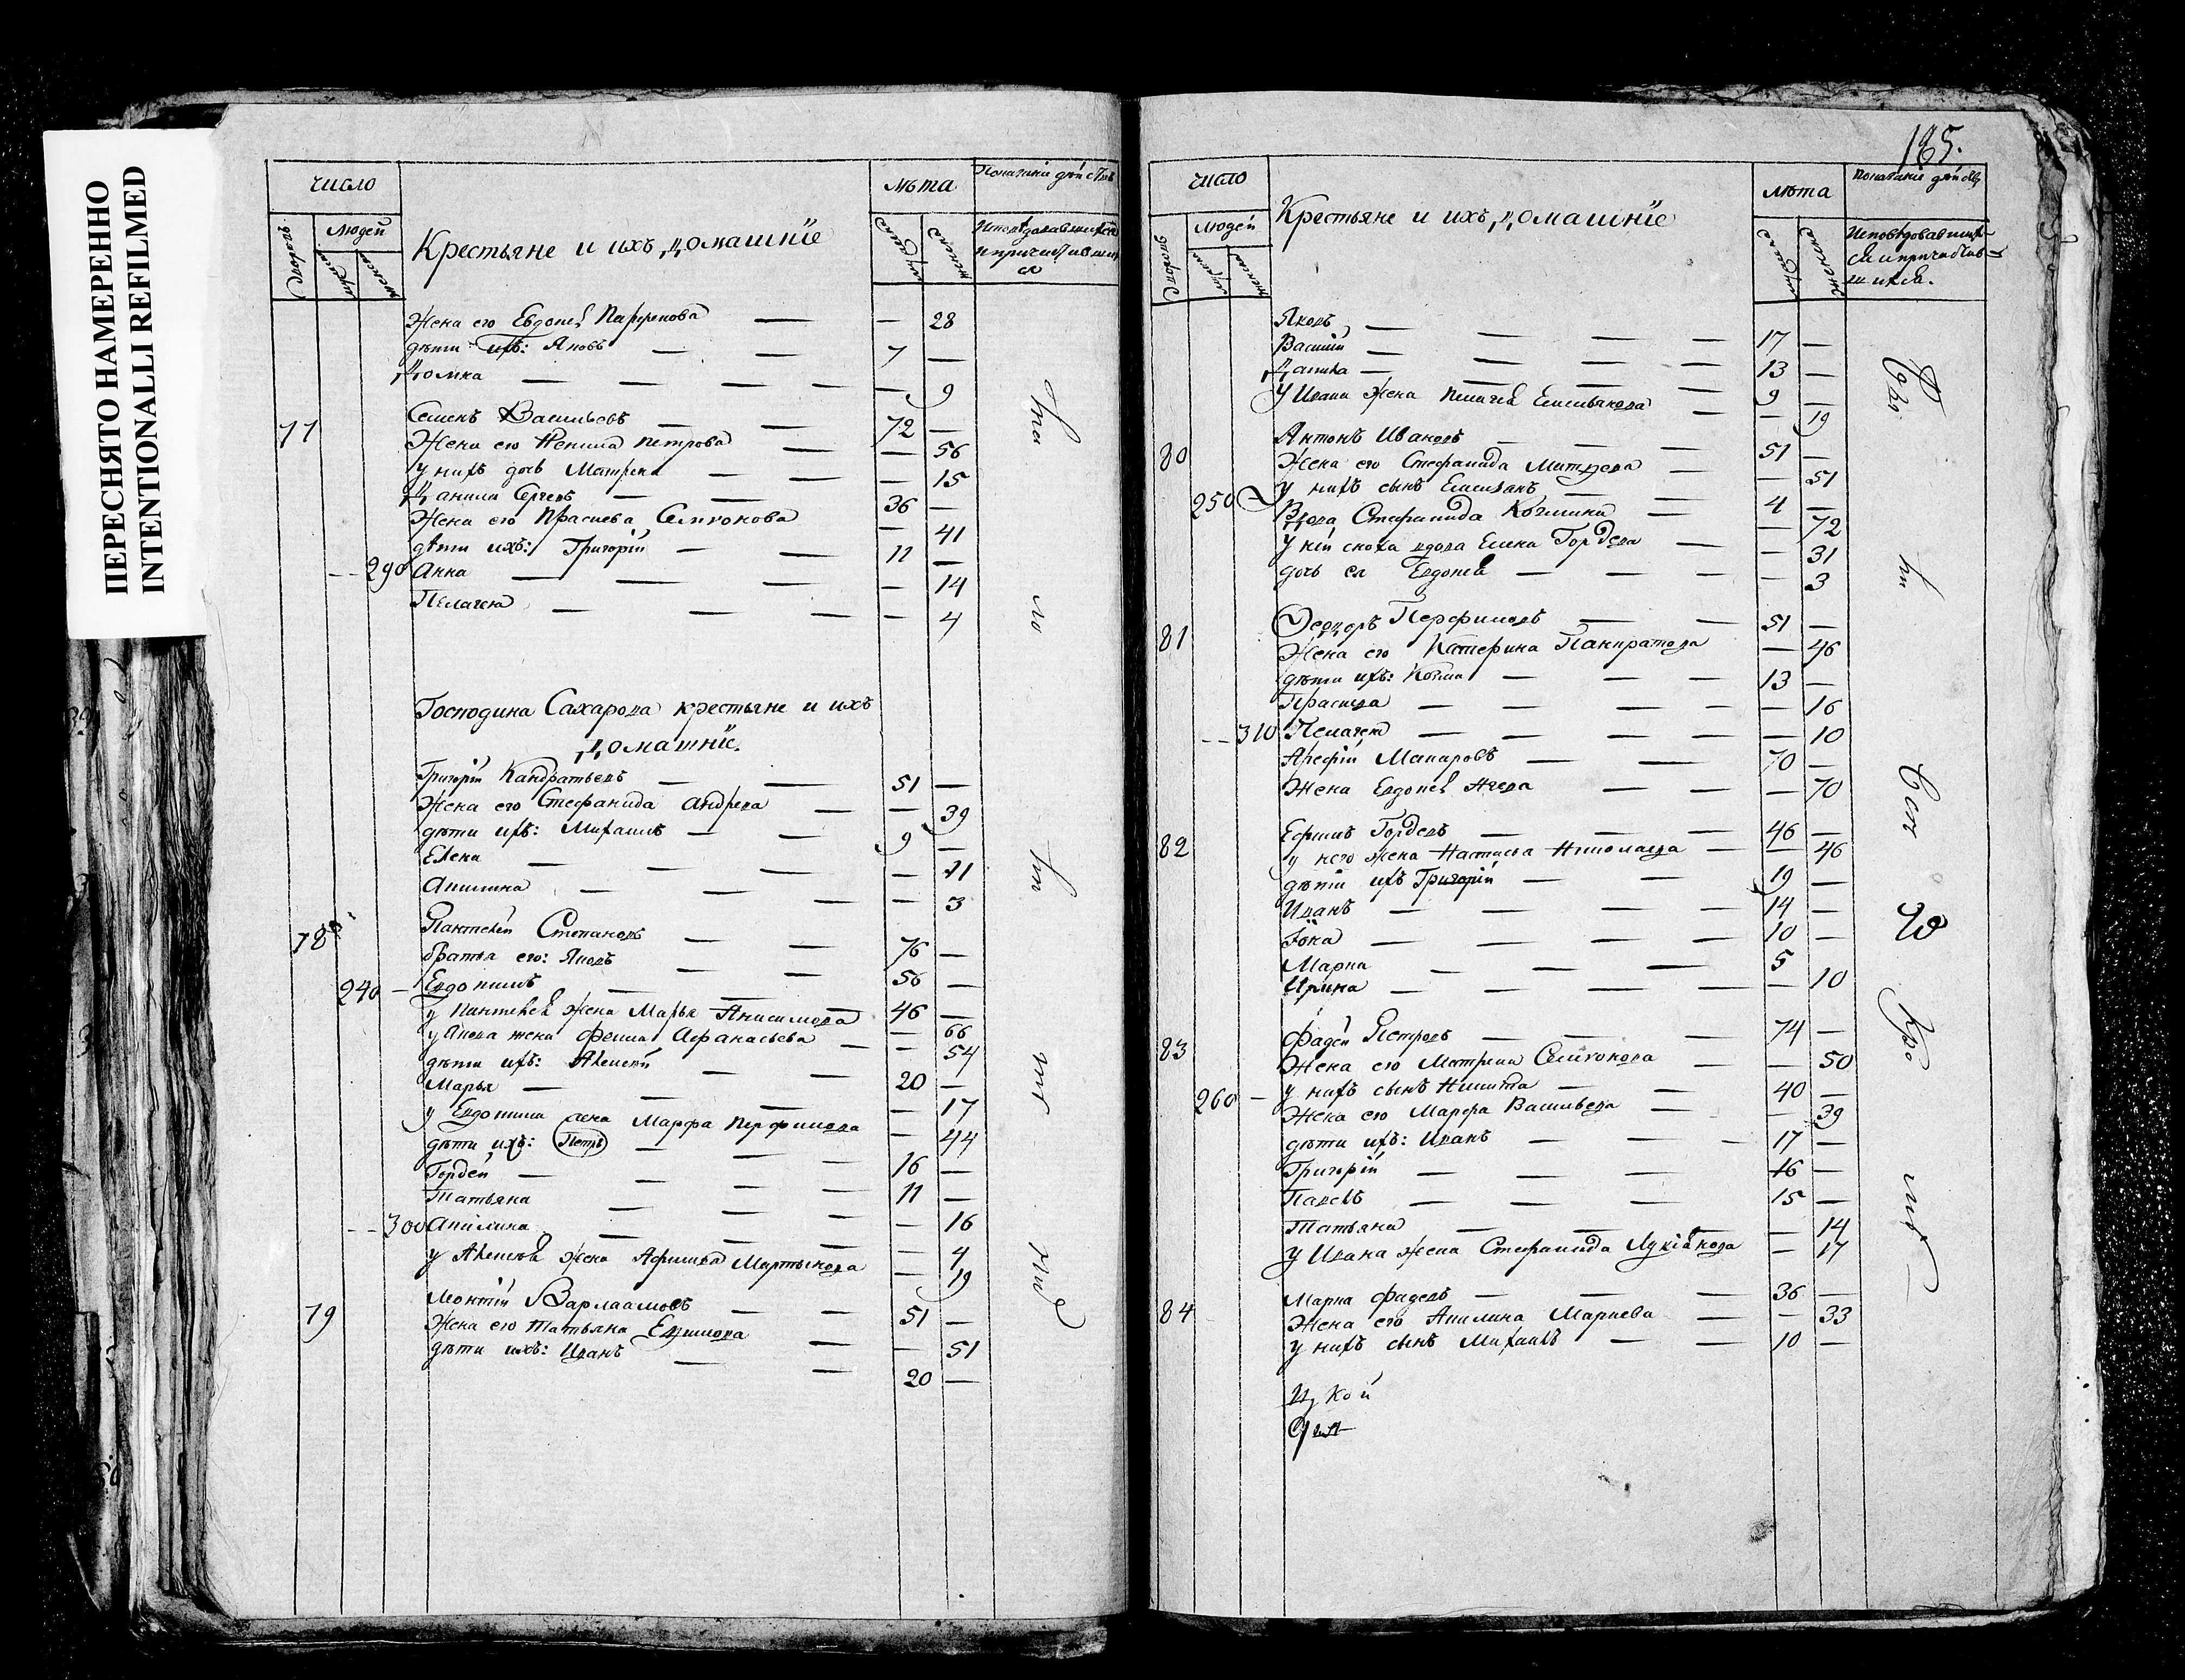 ПЕРЕСНЯТО НАМЕРЕННО
INTENTIONALLI REFILMED
число
людей
Крестьяне и ихъ домашніе
лѣта
Показаніе дѣйствъ
Жена его Евдокея Парфенова — — 28
дѣти ихъ: Яковъ — — 7 —
Домка — — — — — 9
77 Семенъ Васильевъ — — 72 —
Жена его Ксенія Петрова — — 56
у нихъ дочь Матрена — — — 15
Данила Сергеевъ — — 36 —
Жена его Прасковья Семионова — 41
дѣти ихъ: Григорій — — 11 —
290 Анна — — — — 14
Пелагея — — — — 4
Господина Сахарова крестьяне и ихъ
домашніе.
Григорій Кандратьевъ — — 51 —
Жена его Стефанида Андреева — — 39
дѣти ихъ: Михаилъ — — 9 —
Елена — — — — 11
Акилина — — — — 3
78 Пантелей Степановъ — — 76 —
братья его: Яковъ — — 56 —
240 — Евдокимъ — — 46 —
у Пантелея жена Марья Анисимова — 66
у Якова жена Фекла Афанасьева — — 54
дѣти ихъ: Алексей — — 20 —
Марья — — — — 17
у Евдокима жена Марфа Перфилова — 44
дѣти ихъ: Петръ — — 16 —
Гордей — — — 11 —
Татьяна — — — — 16
300 Акилина — — — — 4
у Алексея жена Афимья Мартынова — 19
79 Моктій Варлаамовъ — — 51 —
Жена его Татьяна Ефимова — — 51
дѣти ихъ: Иванъ — — 20 —
185.
число
людей
Крестьяне и ихъ домашніе
лѣта
Показаніе дѣйств
Исповѣдавшіе-
ся и причастив-
шихся.
Яковъ — — — 17 —
Василій — — — 13 —
Данила — — — 9 —
У Ивана жена Пелагея Емельянова — — 19
80 Антонъ Ивановъ — — 51 —
Жена его Стефанида Митреева — — 51
250 у нихъ сынъ Емельянъ — — 4 —
Вдова Стефанида Козмина — — 72
у ней сноха вдова Елена Гордеева — — 31
дочь ея Евдокея — — — — 3
81 Федоръ Перфиловъ — — 51 —
Жена его Катерина Панкратова — 46
дѣти ихъ: Козма — — — 13 —
Прасковья — — — — 16
310 Пелагея — — — — — 10
Арефій Макаровъ — — 70 —
Жена Евдокея Агеева — — — 70
82 Ефимъ Гордеевъ — — — 46 —
у него жена Настасья Николаева — — 46
дѣти ихъ Григорій — — 19 —
Иванъ — — — — 14 —
Фока — — — — 10 —
Марка — — — 5
Ирина — — — — — 10
83 Фадей Петровъ — — — 74 —
Жена его Матрена Семионова — — 50
260 — у нихъ сынъ Никита — — 40 —
Жена его Марфа Васильева — — 39
дѣти ихъ: Иванъ — — — 17 —
Григорій — — — 16 —
Павелъ — — — 15 —
Татьяна — — — — 14
У Ивана жена Стефанида Лукіанова — 17
84 Марка Фадеевъ — — — 36 —
Жена его Акилина Маркева — — 33
у нихъ сынъ Михаилъ — — 10 —